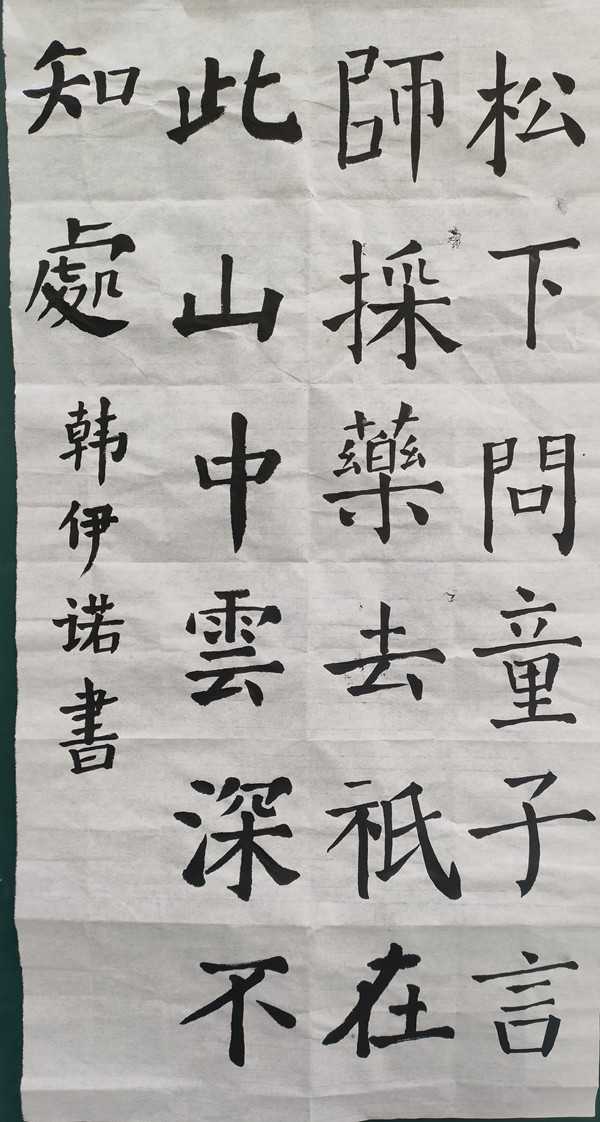 松下問童子言
師採藥去祇在
此山中雲深不
知處
韩伊诺書